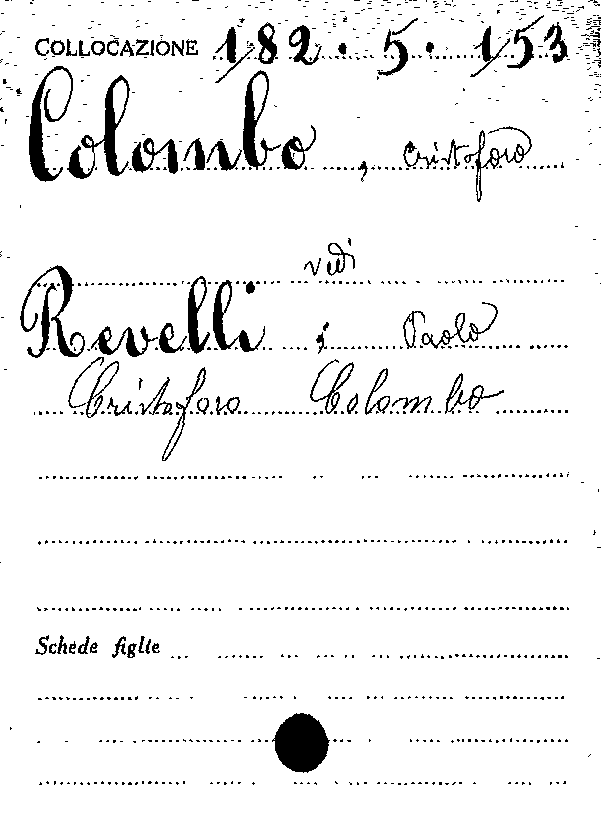 COLLOCAZIONE 182.5.153
Colombo, Cristoforo
vedi
Revelli, Paolo
Cristoforo Colombo
Schede figlie